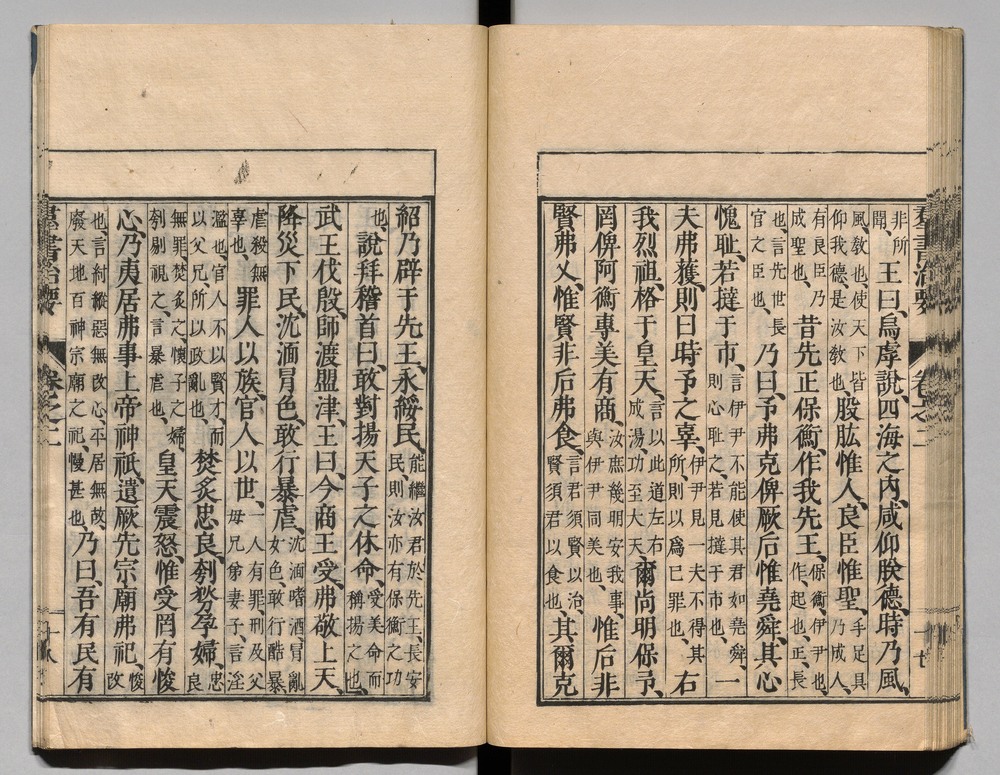 羣書治要 卷之二 十七
非所聞、王曰、烏虖說、四海之內、咸仰朕德、時乃風、
風、教也、使天下皆仰我德、是汝教也、股肱惟人、良臣惟聖、手足具乃成人、
有良臣、乃成聖也、昔先正保衡、作我先王、保衡、伊尹也、作、起也、正、長
也、言先世長官之臣也、乃曰、予弗克俾厥后惟堯舜、其心
愧耻、若撻于市、言伊尹不能使其君如堯舜、則心耻之、若見撻于市也、一
夫弗獲、則曰時予之辜、伊尹見一夫不得其所、則以爲己罪也、右
我烈祖、格于皇天、言以此道左右成湯、功至大天爾尚明保予、
罔俾阿衡專美有商、汝庶幾明安我事、與伊尹同美也、惟后非
賢弗乂、惟賢非后弗食、言君須賢以治、賢須君以食也、其爾克
紹乃辟于先王、永綏民、能繼汝君於先王、長安民、則汝亦有保衡之功
也、說拜稽首曰、敢對揚天子之休命、受美命而稱揚之也、
武王伐殷、師渡盟津、王曰、今商王受、弗敬上天、
降災下民、沈湎冒色、敢行暴虐、沈湎嗜酒、冒亂女色、敢行酷暴
虐殺無辜也、罪人以族、官人以世、一人有罪、刑及父母兄弟妻子、言淫
濫也、官人不以賢才、而以父兄、所以政亂也、焚炙忠良、刳剔孕婦、忠良
無罪、焚炙之、懷子之婦、刳剔視之、言暴虐也、皇天震怒、惟受罔有悛
心、乃夷居弗事上帝神祇、遺厥先宗廟弗祀、悛改
也、言紂縱惡無改心、平居無故、廢天地百神宗廟之祀、慢甚也、乃曰、吾有民有
羣書治要 卷之二 十八